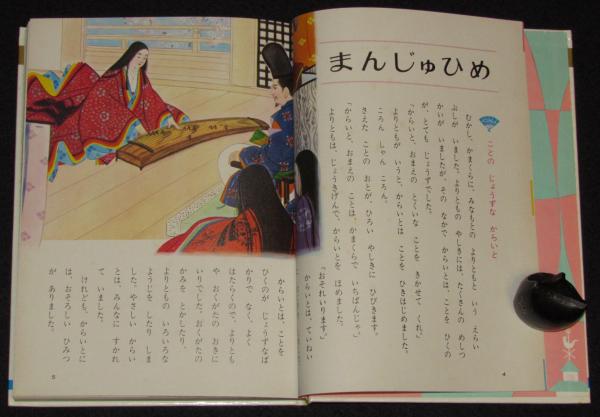 まんじゅひめ
ことの じょうずな からいと
むかし、かまくらに、みなもとの よりともと いう えらい
ぶしが いました。よりともの やしきには、たくさんの めしつ
かいが いましたが、その なかで からいとは、ことを ひくの
が、とても じょうずでした。
「からいと、おまえの とくいな ことを きかせて くれ。」
よりともが いうと、からいとは ことを ひきはじめました。
ころん しゃん ころん。
さえた ことの おとが、ひろい やしきに ひびきます。
「からいと、おまえの ことは、かまくらで いちばんじゃ。」
よりともは、じょうきげんで、からいとを ほめました。
「おそれいります。」
からいとは、ていねい
4
からいとは、ことを
ひくのが じょうずなば
かりで なく、よく
はたらくので、よりとも
や おくがたの おきに
いりでした。おくがたの
かみを とかしたり、
よりともの いろいろな
ようじを したり しま
した。やさしい からい
とは、みんなに すかれ
て いました。
けれども、からいとに
は、おそろしい ひみつ
が ありました。
5